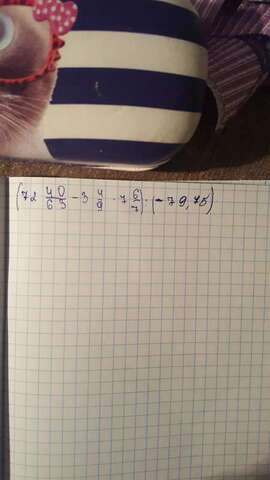 (72 40/63 - 3 4/9 · 7 6/7) · (-79,75)